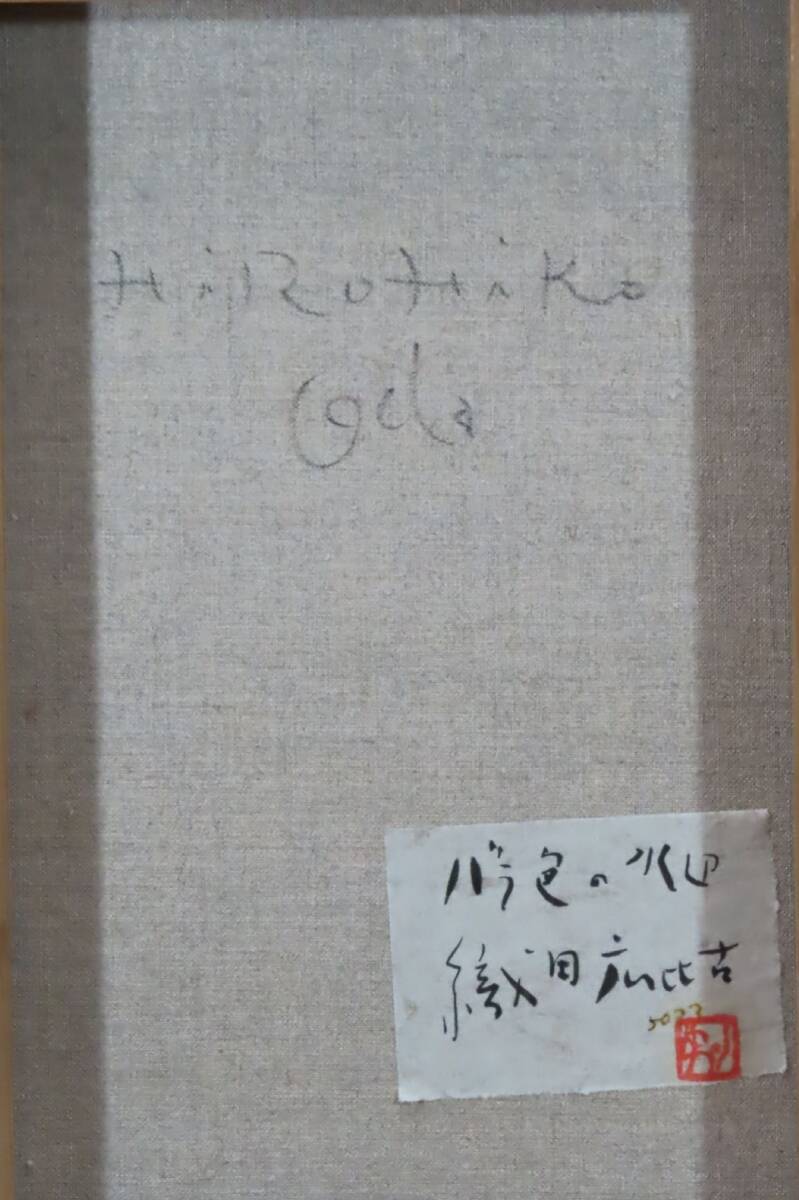 HiRoHiKo
Oda
バラ色の畑
織田広比古
5022